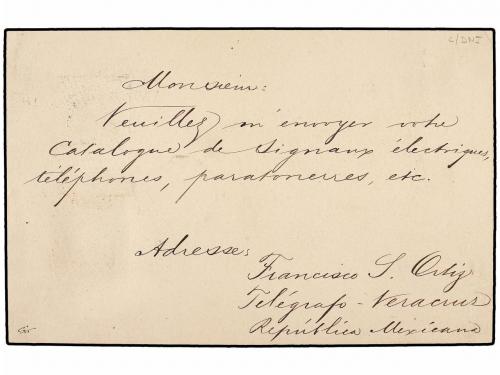 Monsieur:
Veuillez m'envoyer votre
Catalogue de signaux électriques,
teléphones, paratonerres, etc.
Adresse:
Francisco S. Ortiz
Telégrafo - Veracruz
República Mexicana